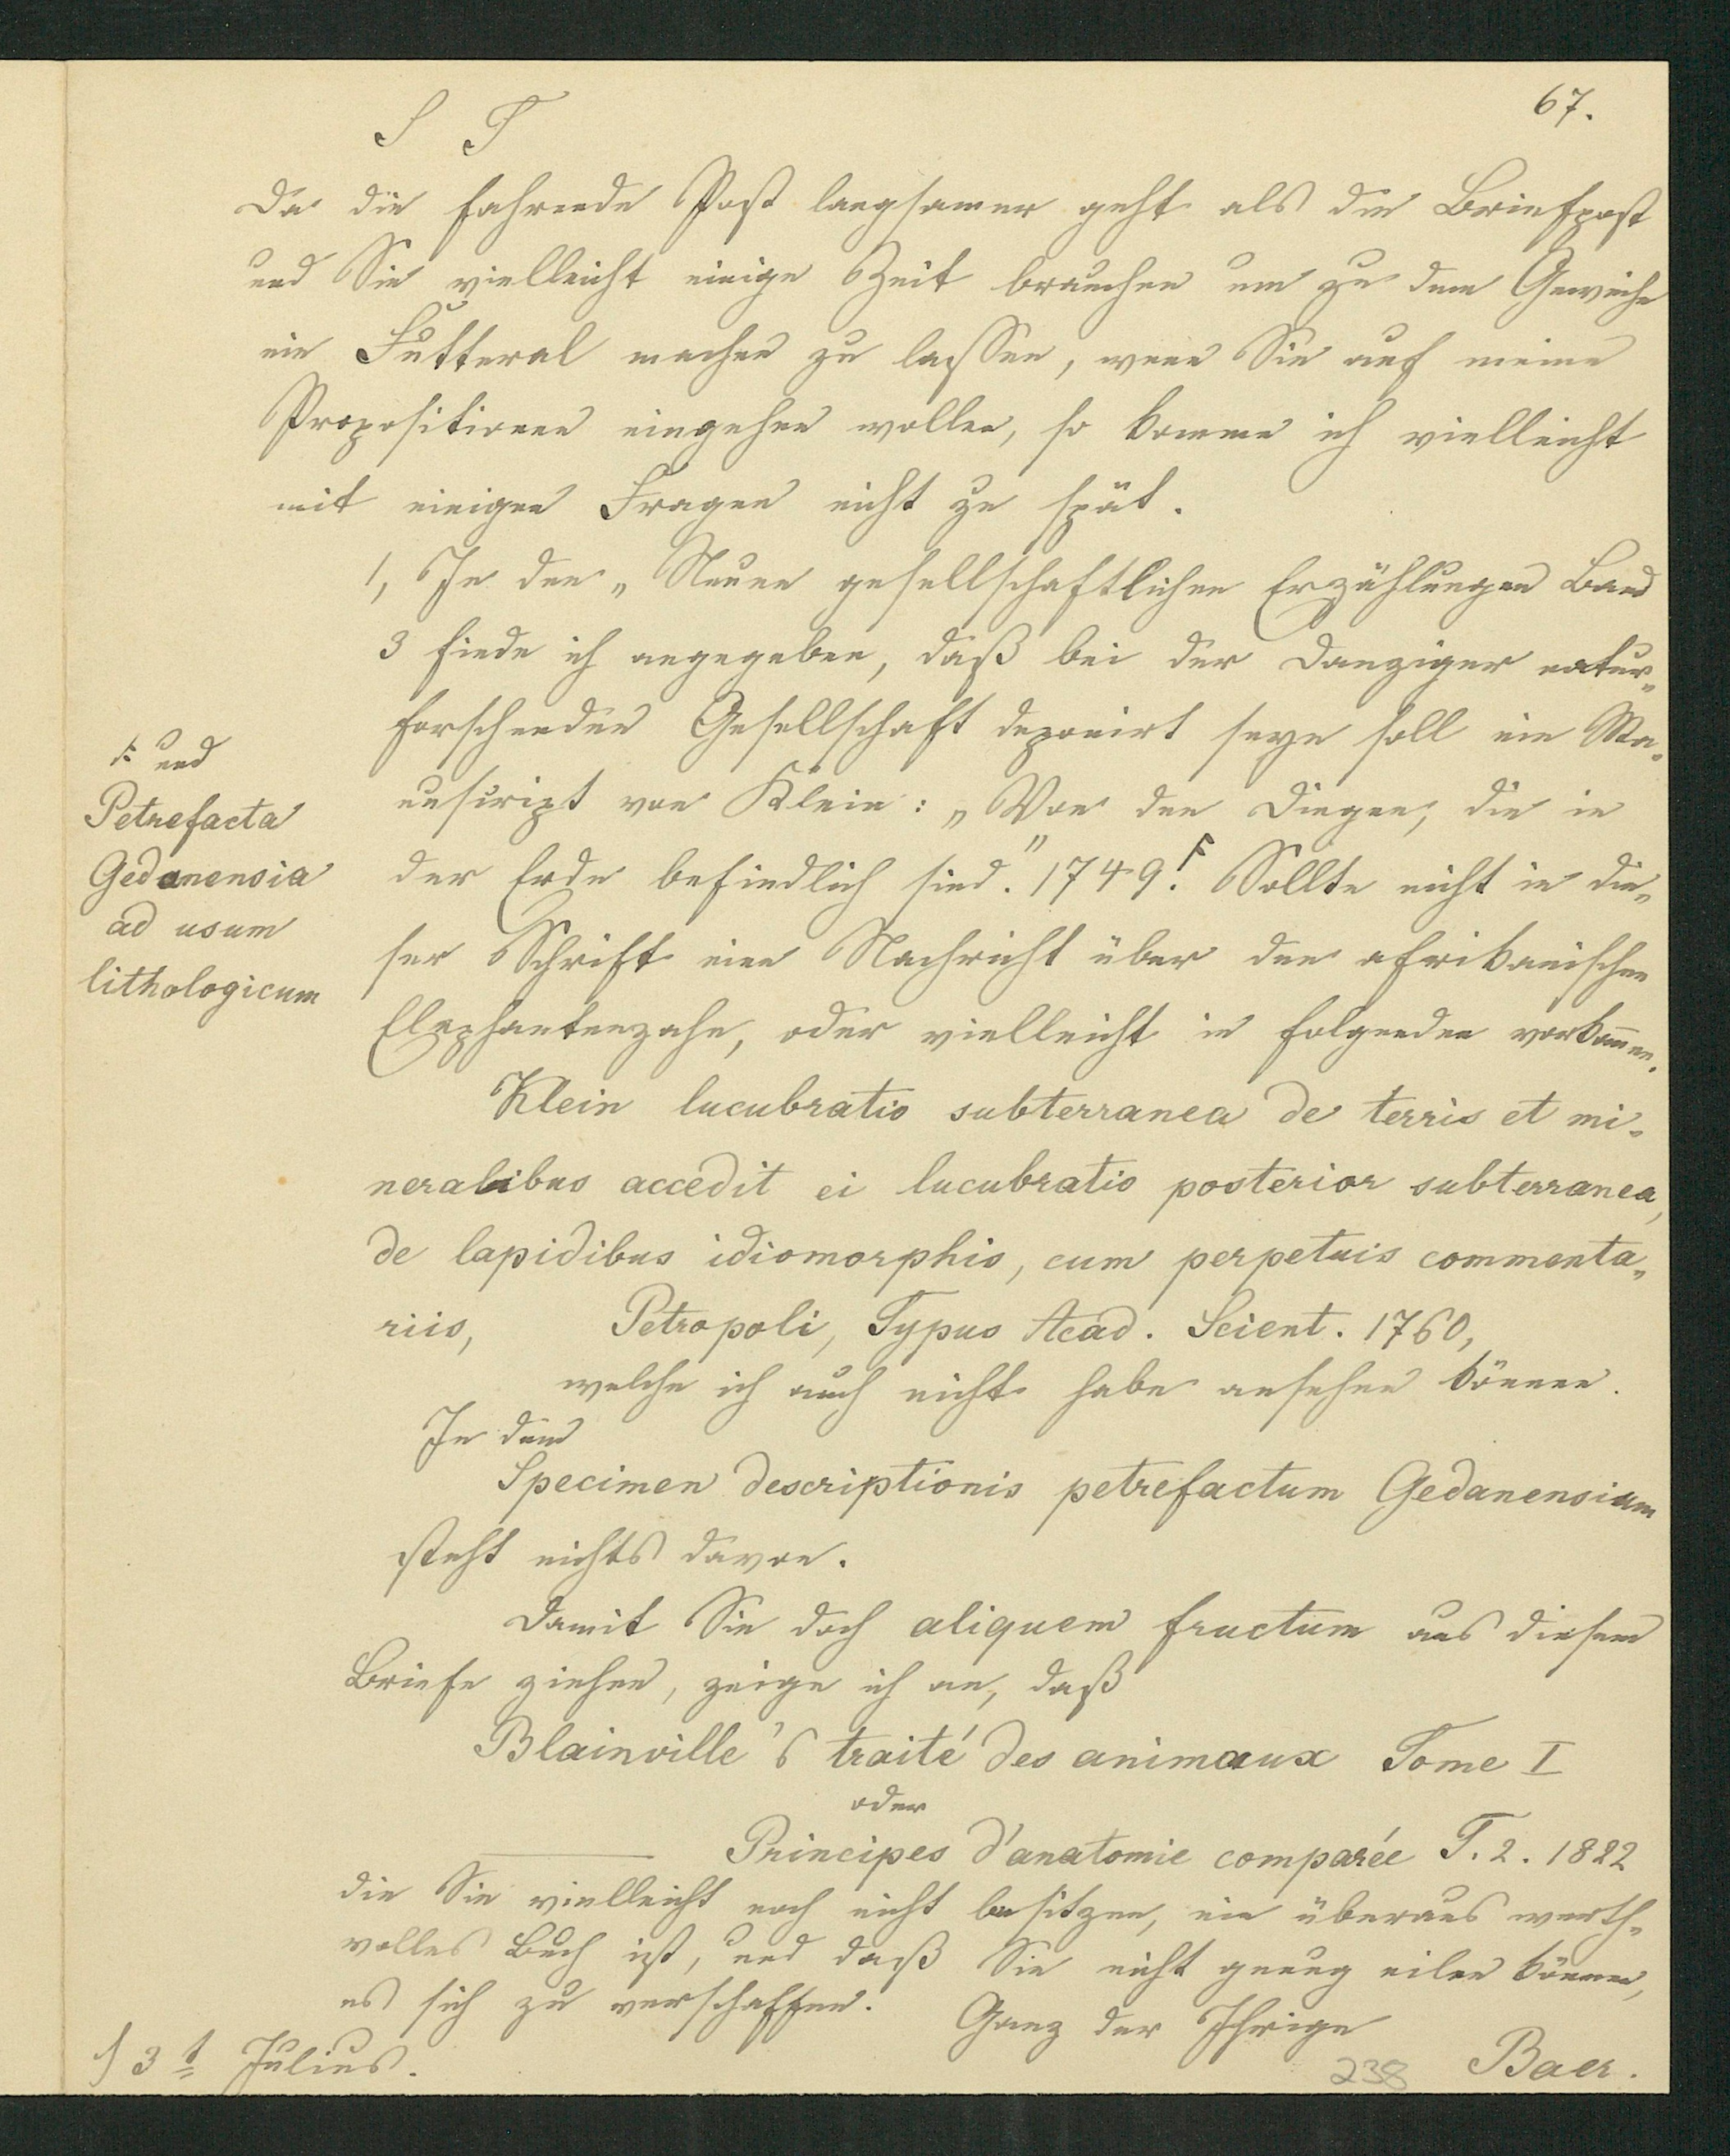 67.
S T
Da die fahrende Post langsamer geht als die Briefpost
und Sie vielleicht einige Zeit brauchen um zu dem Geweihe
ein Futteral machen zu lassen, wenn Sie auf meine
Propositionen eingehen wollen, so komme ich vielleicht
mit einigen Fragen nicht zu spät.
1, In den „Neuen gesellschaftlichen Erzählungen Band
3 finde ich angegeben, daß bei der Danziger natur-
forschenden Gesellschaft deponirt seyn soll ein Ma-
nuscript von Klein: „Von den Dingen, die in
der Erde befindlich sind." 1749. Sollte nicht in die-
ser Schrift eine Nachricht über den afrikanischen
Elephantenzahn, oder vielleicht in folgenden vorkom̅en.
und
Petrefacta
Gedanensia
ad usum
lithologicum
Klein lucubratio subterranea de terris et mi-
neralibus accedit ei lucubratio posterior subterranea,
de lapidibus idiomorphis, cum perpetuis commenta-
riis, Petropoli, Typus Acad. Scient. 1760,
welche ich auch nicht habe ansehen können.
In dem
Specimen descriptionis petrefactum Gedanensium
steht nichts davon.
Damit Sie doch aliquem fructum aus diesem
Briefe ziehen, zeige ich an, daß
Blainville's traité des animaux Tome I
oder
Principes d'anatomie comparée T. 2. 1822
die Sie vielleicht noch nicht besitzen, ein überaus werth-
volles Buch ist, und daß Sie nicht genug eilen können,
es sich zu verschaffen. Ganz der Ihrige
13t Julius. Baer.
238